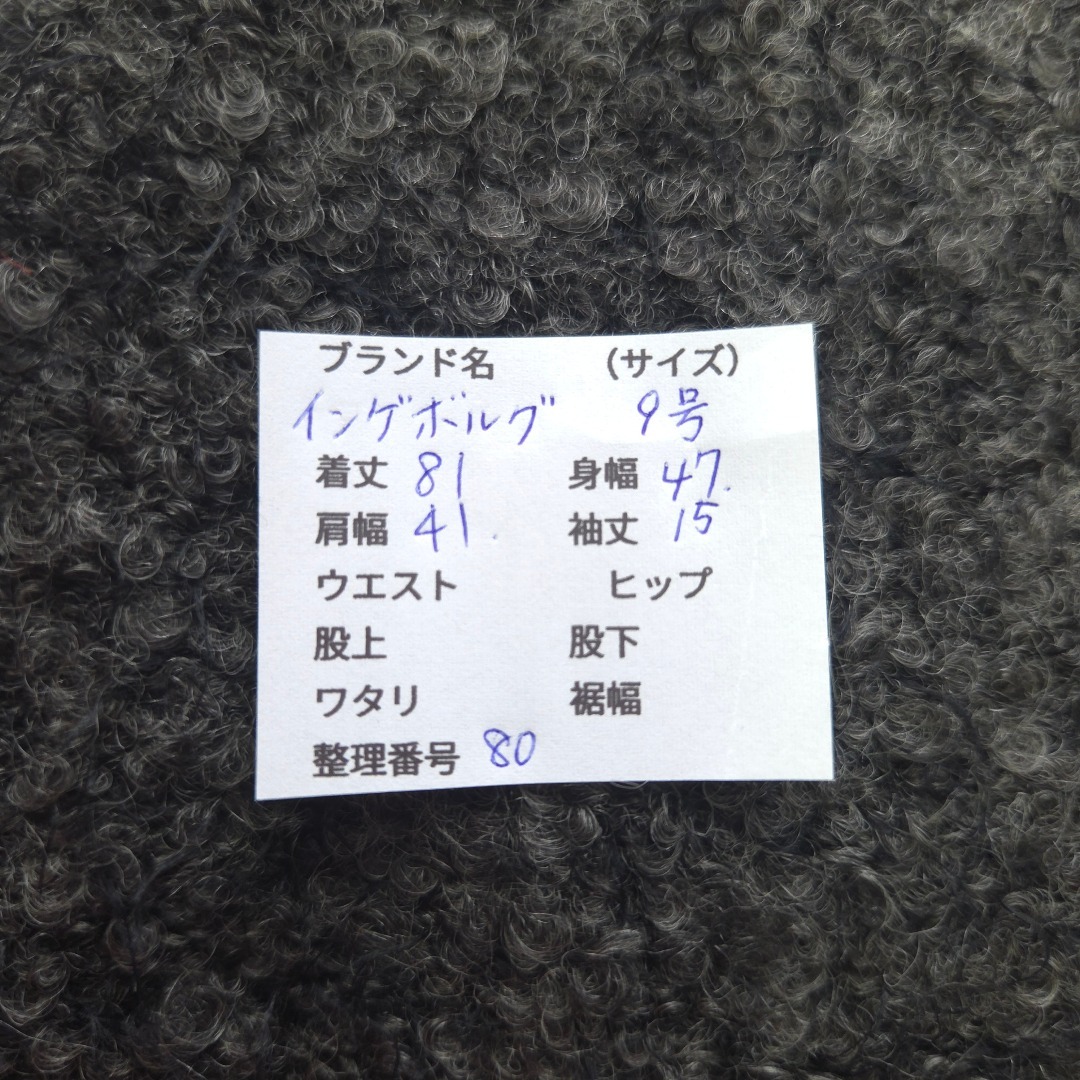 ブランド名 (サイズ)
インゲボルグ 9号
着丈 81 身幅 47.
肩幅 41. 袖丈 15
ウエスト ヒップ
股上 股下
ワタリ 裾幅
整理番号 80